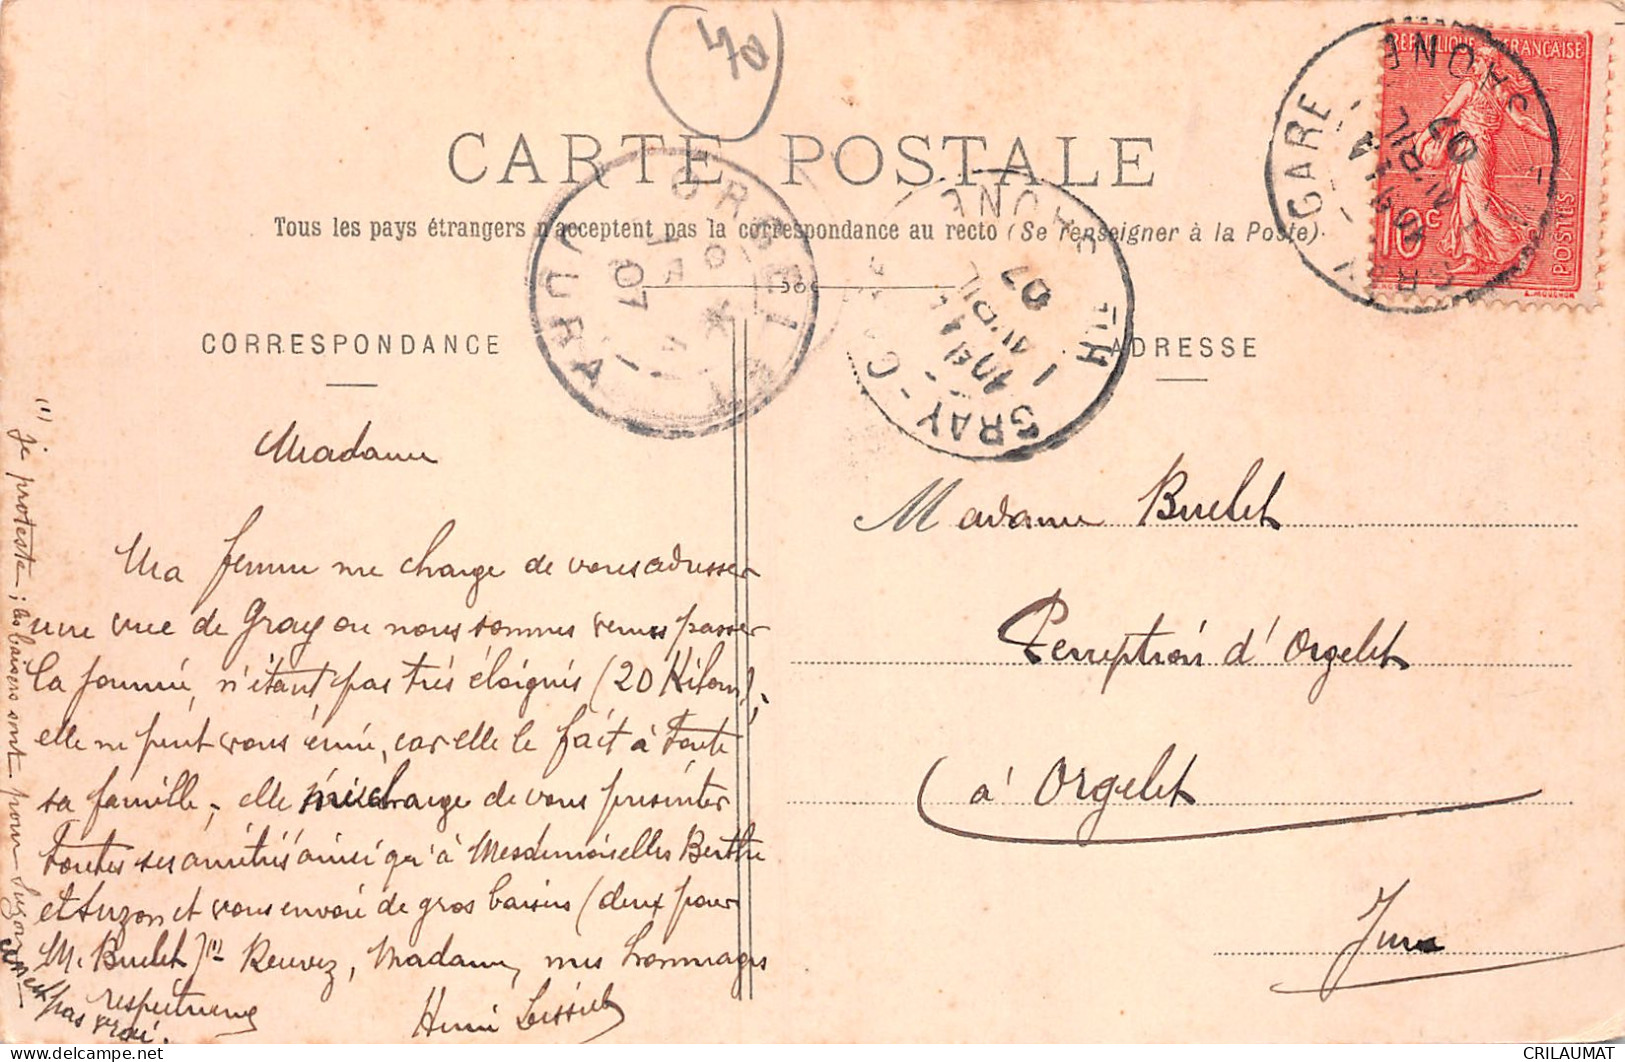 40
CARTE POSTALE
Tous les pays étrangers n'acceptent pas la correspondance au recto (Se renseigner à la Poste).
CORRESPONDANCE
ADRESSE
REPUBLIQUE FRANÇAISE
10c
POSTES
GRAY GARE
HTE SAONE
AVRIL
07
ORGELET
JURA
07
GRAY
HTE SAONE
1 AVRIL
07
Madame
Ma femme me charge de vous adresser
une vue de Gray ou nous sommes venus passer
la journée, n'étant pas très éloignés (20 Kilom);
elle ne peut vous écrire, car elle le fait à toute
sa famille; elle me charge de vous présenter
toutes ses amitiés ainsi qu'à Mesdemoiselles Berthe
et Suzon et vous envoie de gros baisers (deux pour
M. Buelet) (1) Recevez, Madame, mes hommages
respectueux
Henri
(1) Je proteste; les baisers sont pour Suzon
c'est pas vrai.
Madame Buelet
Perception d'Orgelet
à Orgelet
Jura
CRILAUMAT